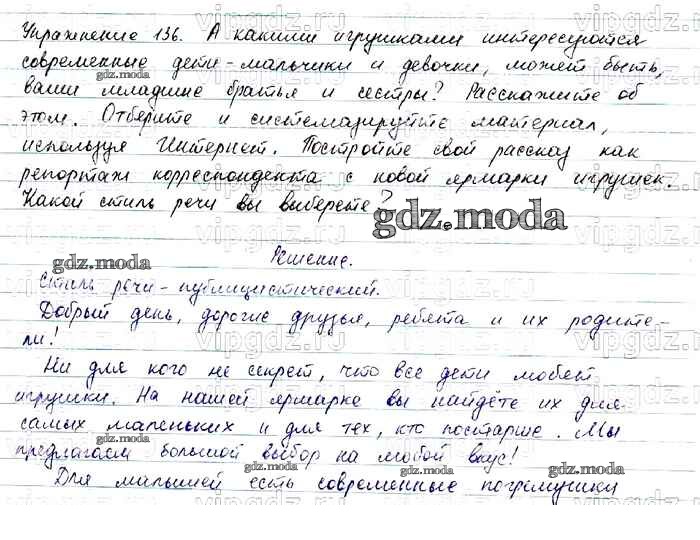 Упражнение 136. А какими игрушками интересуются
современные дети - мальчики и девочки, может быть,
ваши младшие братья и сестры? Расскажите об
этом. Отберите и систематизируйте материал,
используя Интернет. Постройте свой рассказ как
репортаж корреспондента с новой ярмарки игрушек.
Какой стиль речи вы выберете?
gdz.moda
Решение.
Стиль речи - публицистический.
Добрый день, дорогие друзья, ребята и их родите-
ли!
Ни для кого не секрет, что все дети любят
игрушки. На нашей ярмарке вы найдёте их для
самых маленьких и для тех, кто постарше. Мы
предлагаем большой выбор на любой вкус!
Для малышей есть современные погремушки